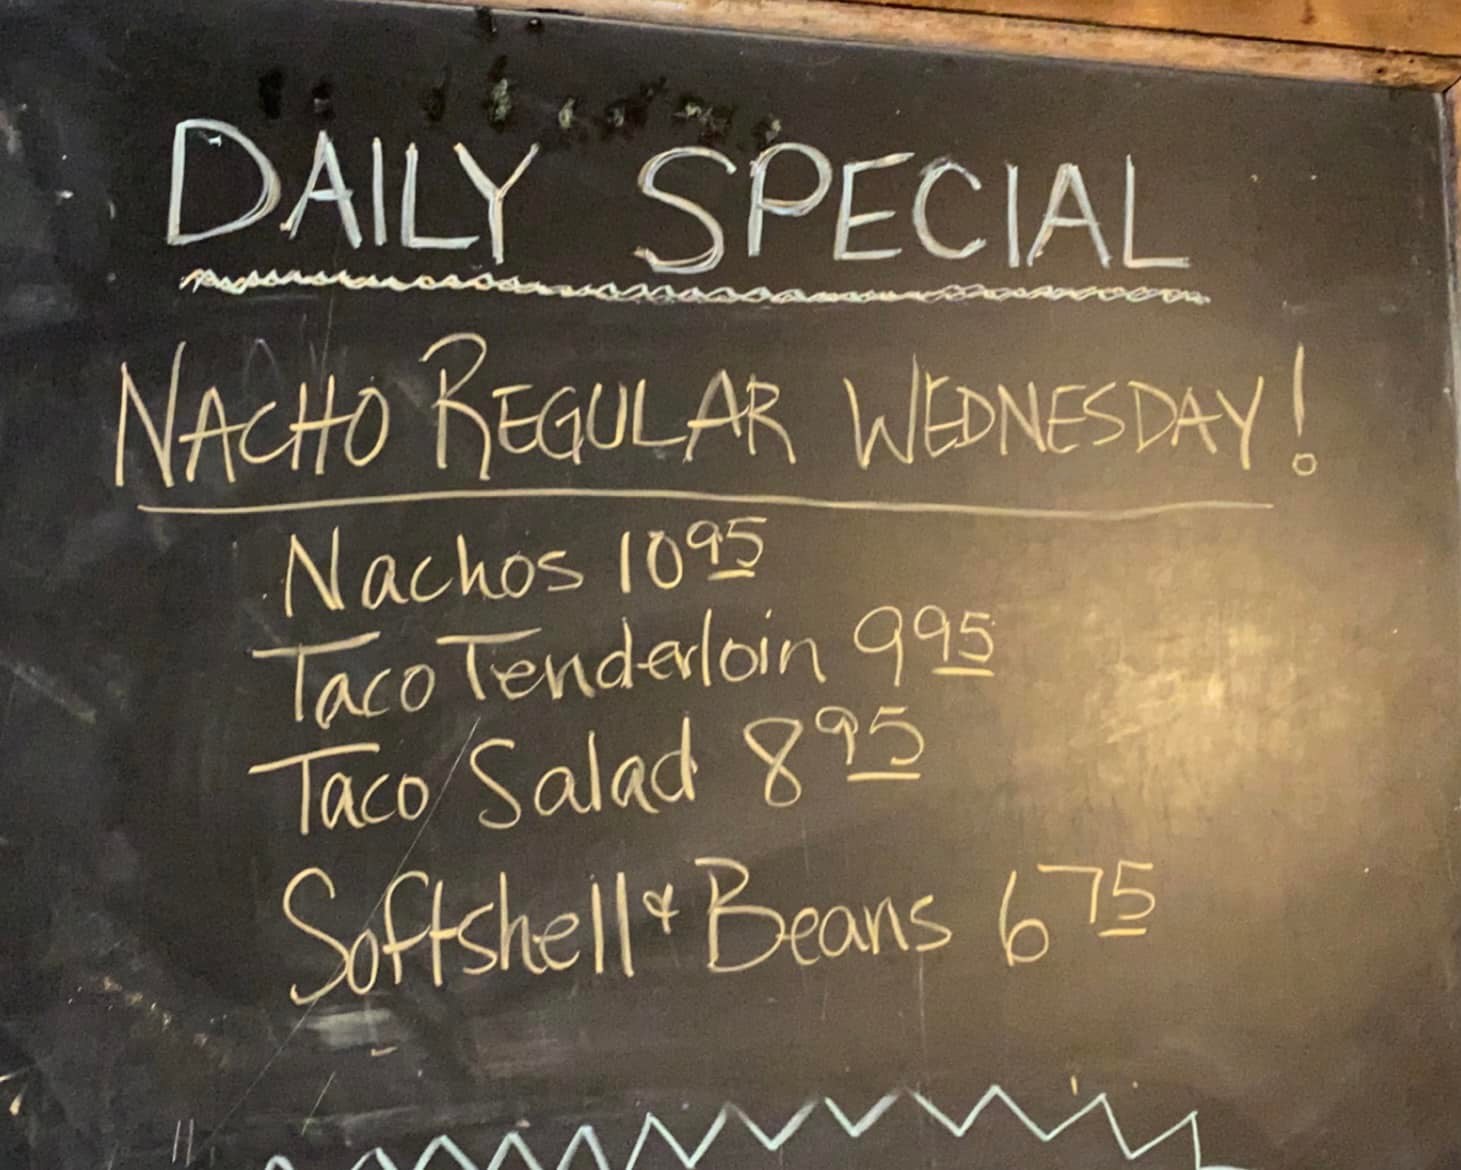 DAILY SPECIAL
NACHO REGULAR WEDNESDAY!
Nachos 10 95
Taco Tenderloin 9 95
Taco Salad 8 95
Softshell & Beans 6 75